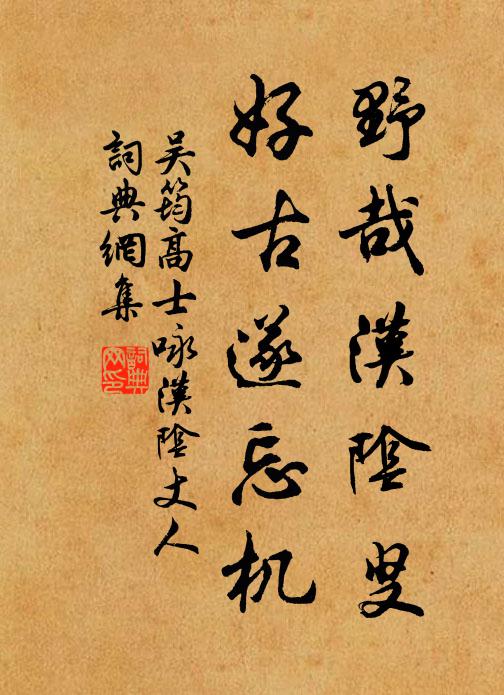 野哉漢陰叟
好古遂忘机
吴筠高士咏漢陰丈人
詞典網集
詞典网印